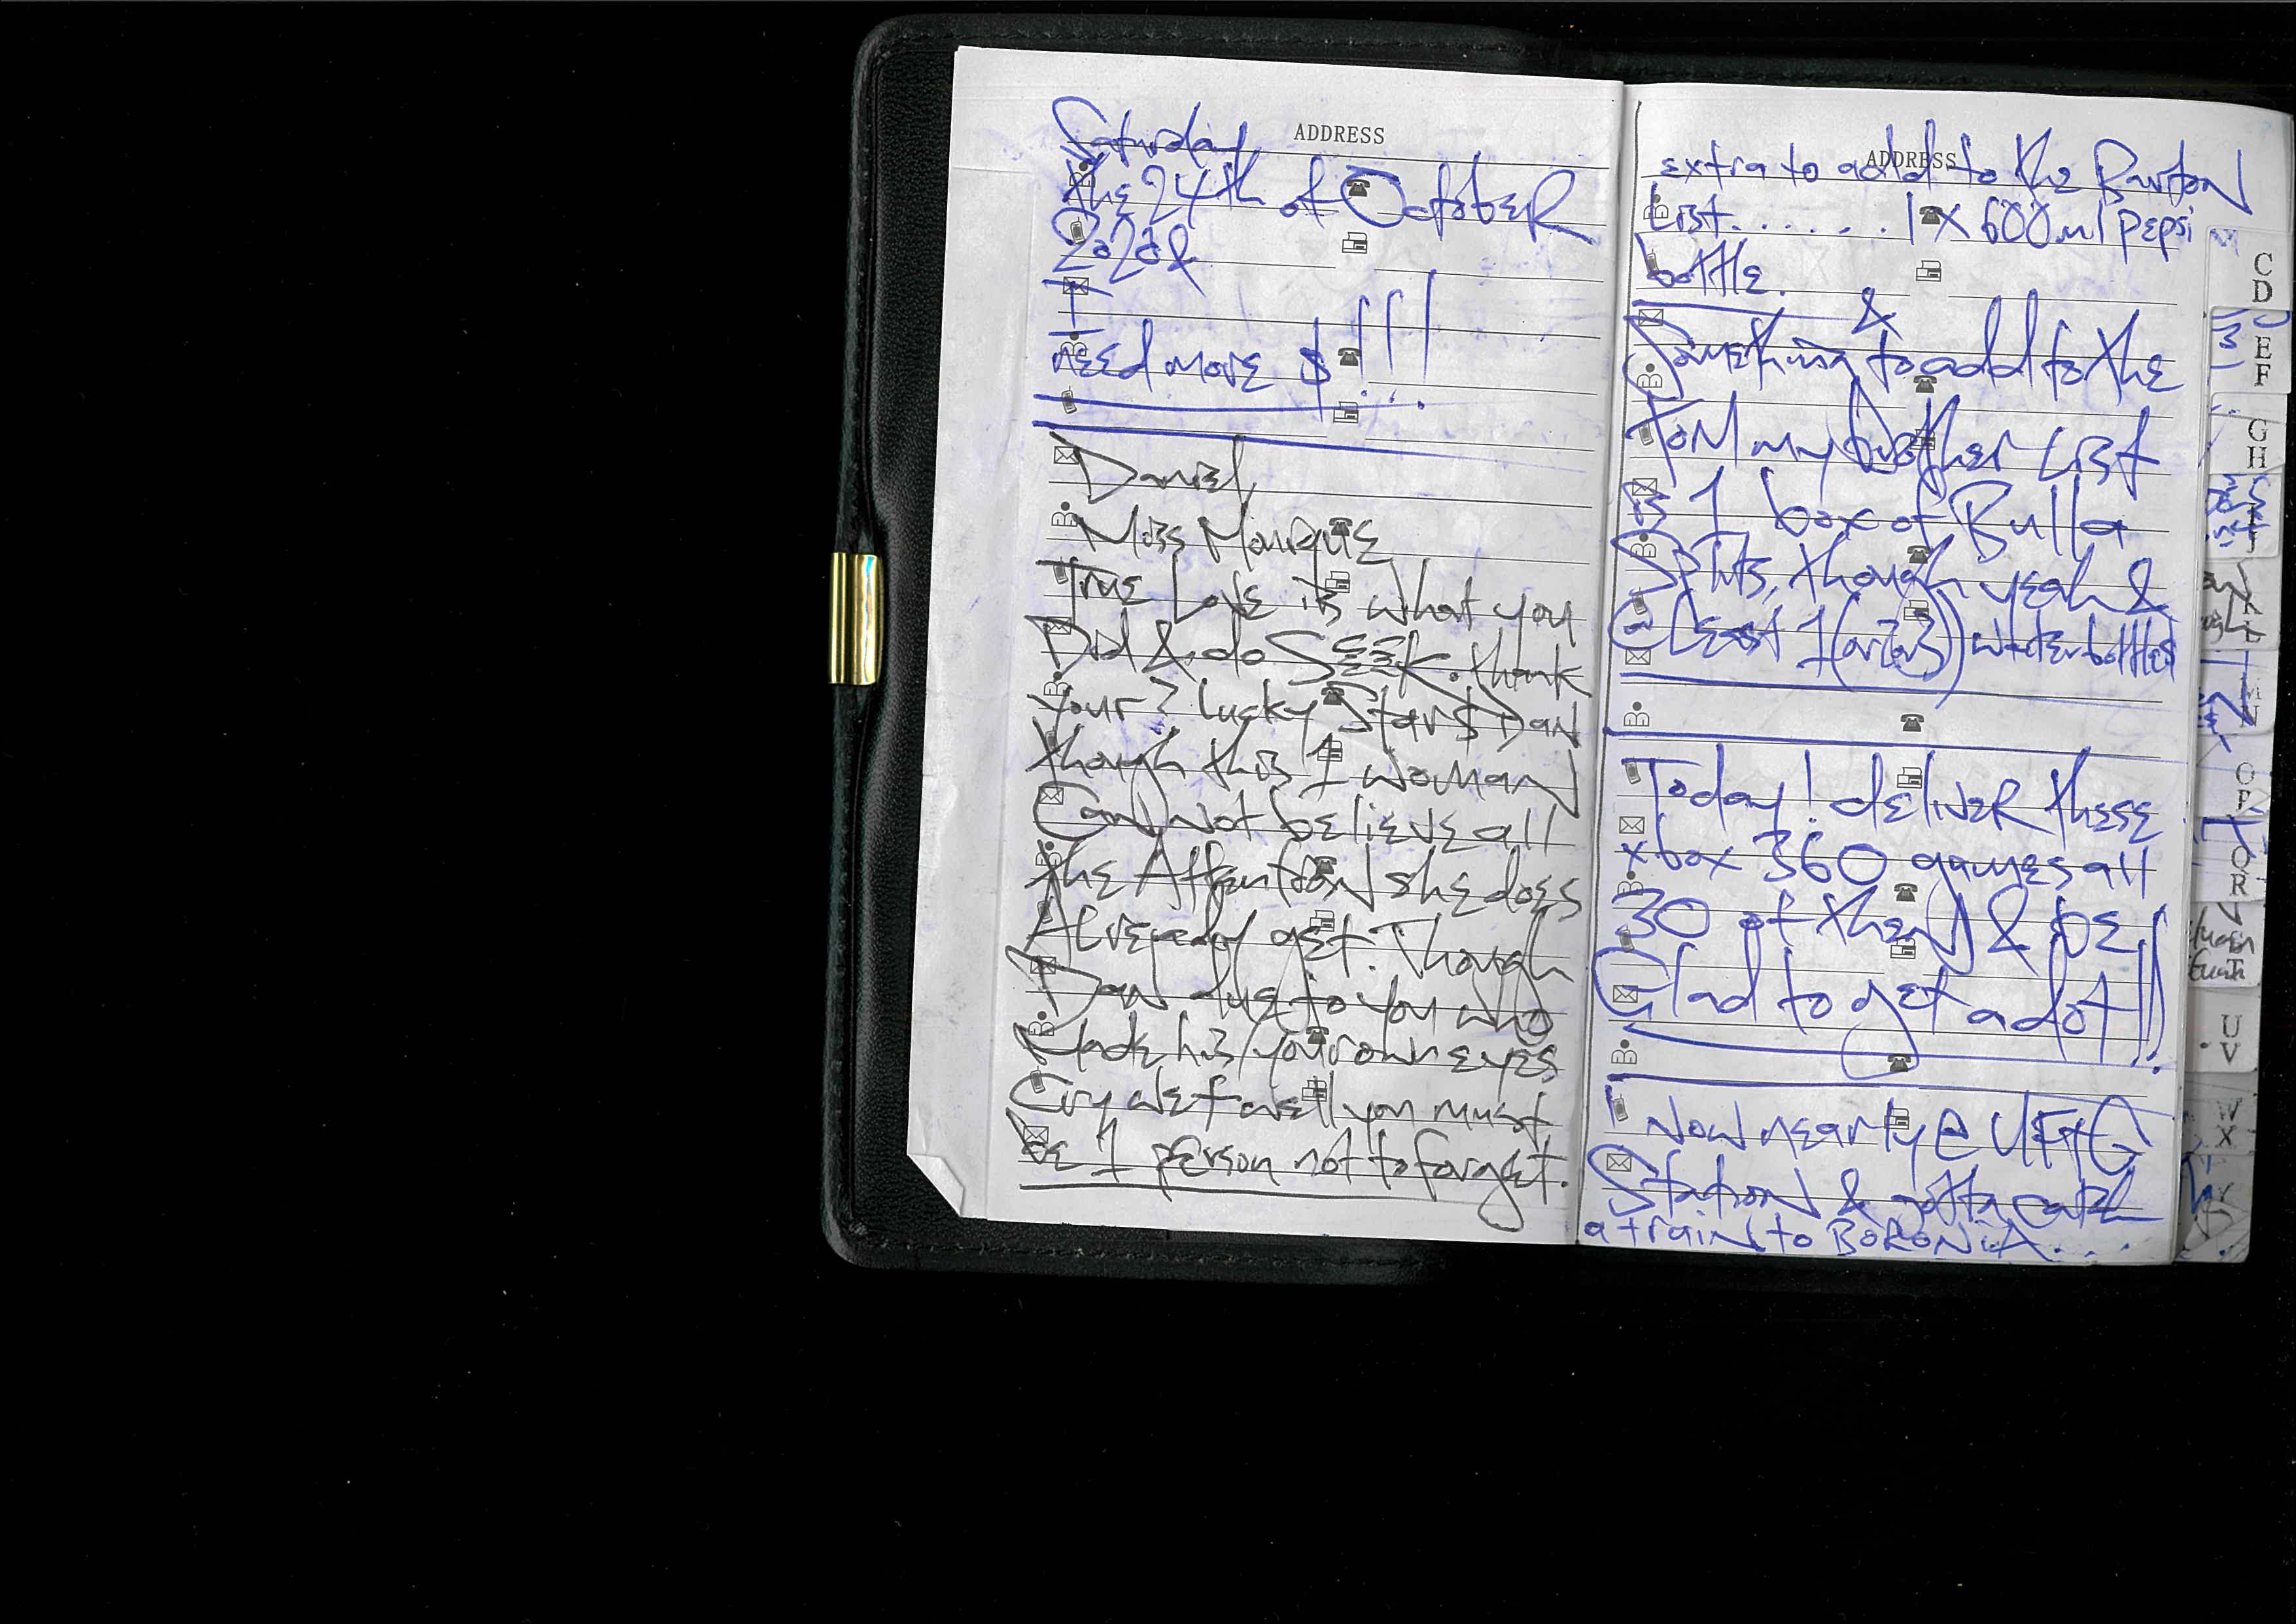 ADDRESS
Saturday
the 24th of OctobER
2020 &
I
need more $!!!
Daniel,
Miss Marque
True Love is what you
Did & do SEEK. thank
your ? lucky Star$ Dan
though this 1 woman
Can not believe all
the Attention she does
Already get. Though
Dan due to you who
Made his/your own eyes
Cry wet well you must
be 1 person not to forget.
ADDRESS
extra to add to the Burton
List....... 1 x 600ml pepsi
bottle.
&
Something to add to the
Tommy brother List
is 1 box of Bulla
Splits, though yeah &
@ Least 1 (or 2 or 3) water bottles
Today! deliver these
xbox 360 games all
30 of them & be
Glad to get a lot!!
Now nearly @ UFTG
Station & gotta catch
a train to BORONIA....
C
D
E
F
G
H
J
K
L
M
N
O
P
Q
R
T
U
V
W
X
Y